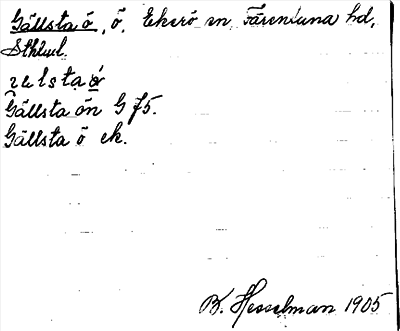 Gällsta ö, ö. Ekerö sn Färentuna hd,
Sthlm l.
Gällsta ön G f5.
Gällsta ö ek.
B. Hesselman 1905